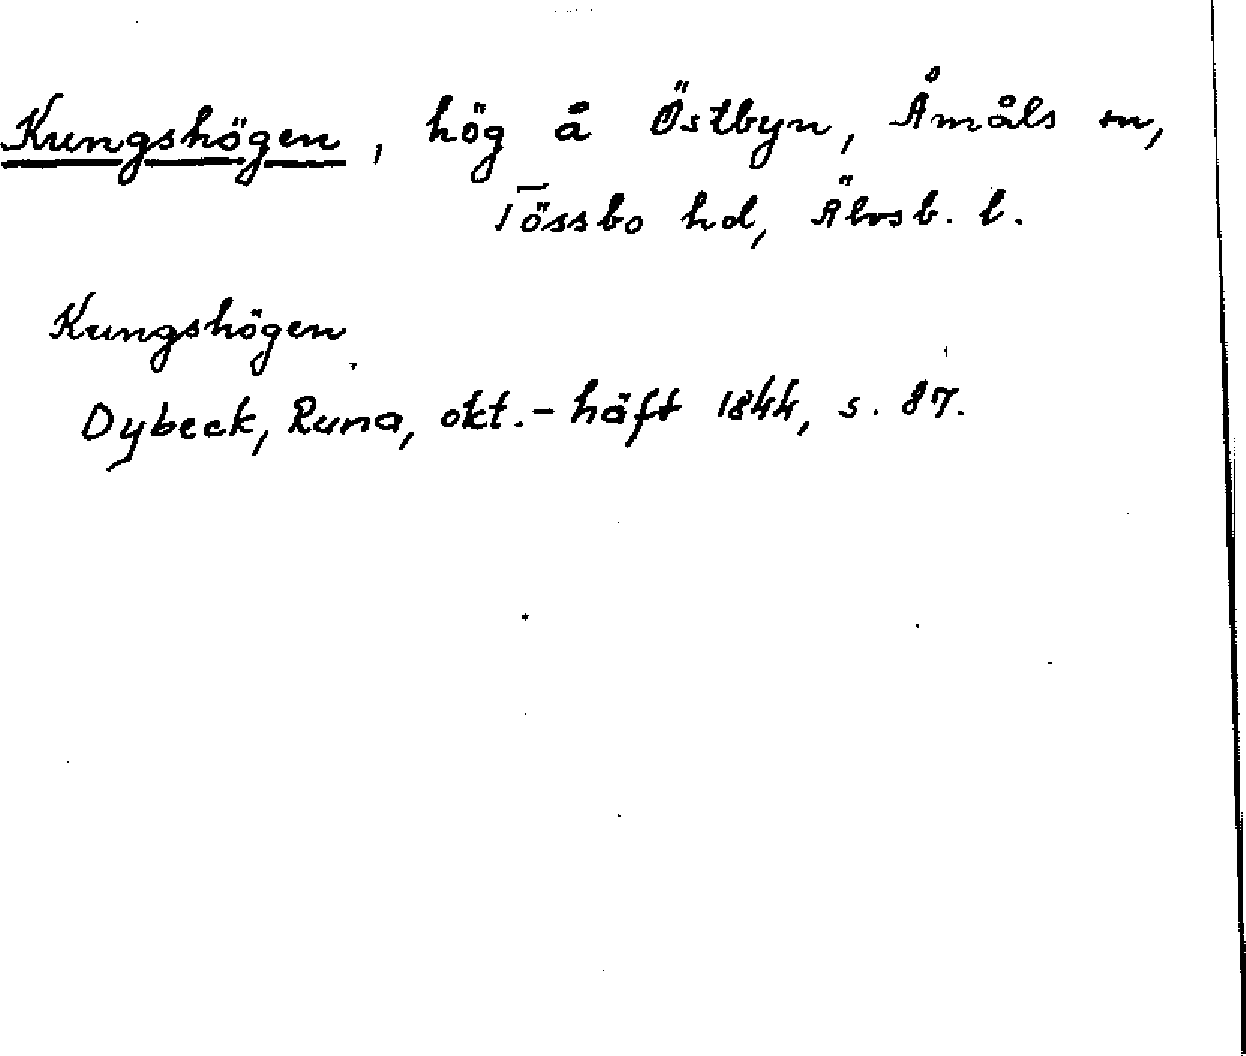 Kungshögen, hög å Östbyn, Åmåls sn,
Tössbo hd, Älvsb. l.
Kungshögen
Dybeck, Runa, okt.-häft 1844, s. 87.